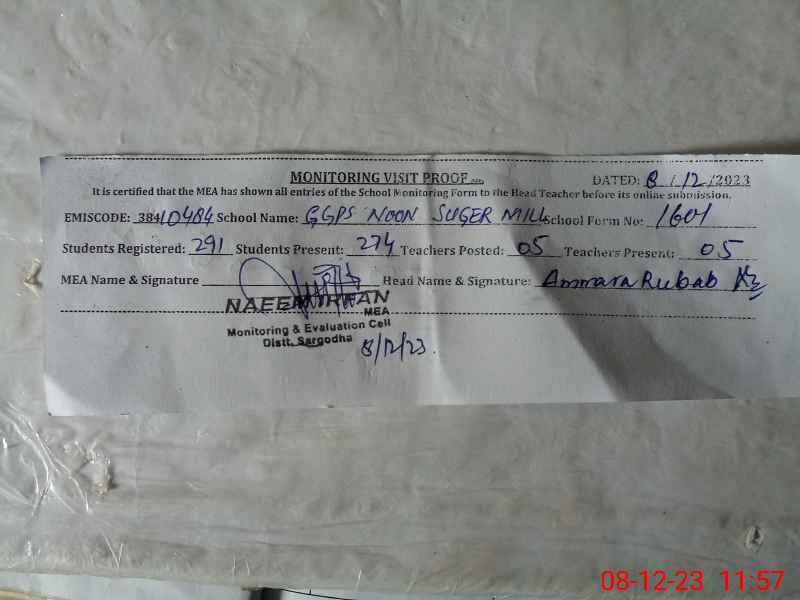 MONITORING VISIT PROOF
DATED: 8/12/2023
It is certified that the MEA has shown all entries of the School Monitoring Form to the Head Teacher before its online submission.
EMISCODE: 38410484 School Name: GGPS NOON SUGER MILL School Form No: 1601
Students Registered: 291 Students Present: 274 Teachers Posted: 05 Teachers Present: 05
MEA Name & Signature Head Name & Signature: Ammara Rubab
NAEEM IRFAN
MEA
Monitoring & Evaluation Cell
Distt. Sargodha
8/12/23.
08-12-23 11:57